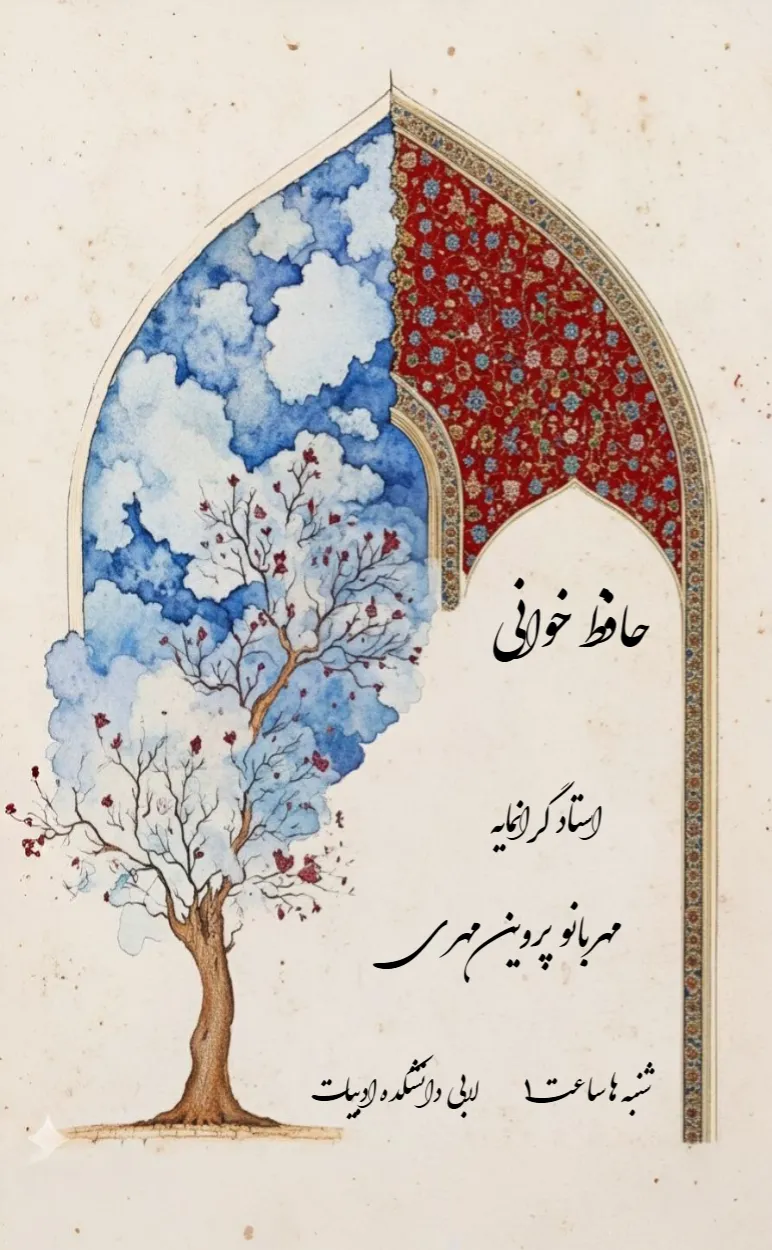 حافظ خوانی
استاد گرانمایه
مهربانو پروین مهری
شنبه ها ساعت ۱ لابی دانشکده ادبیات